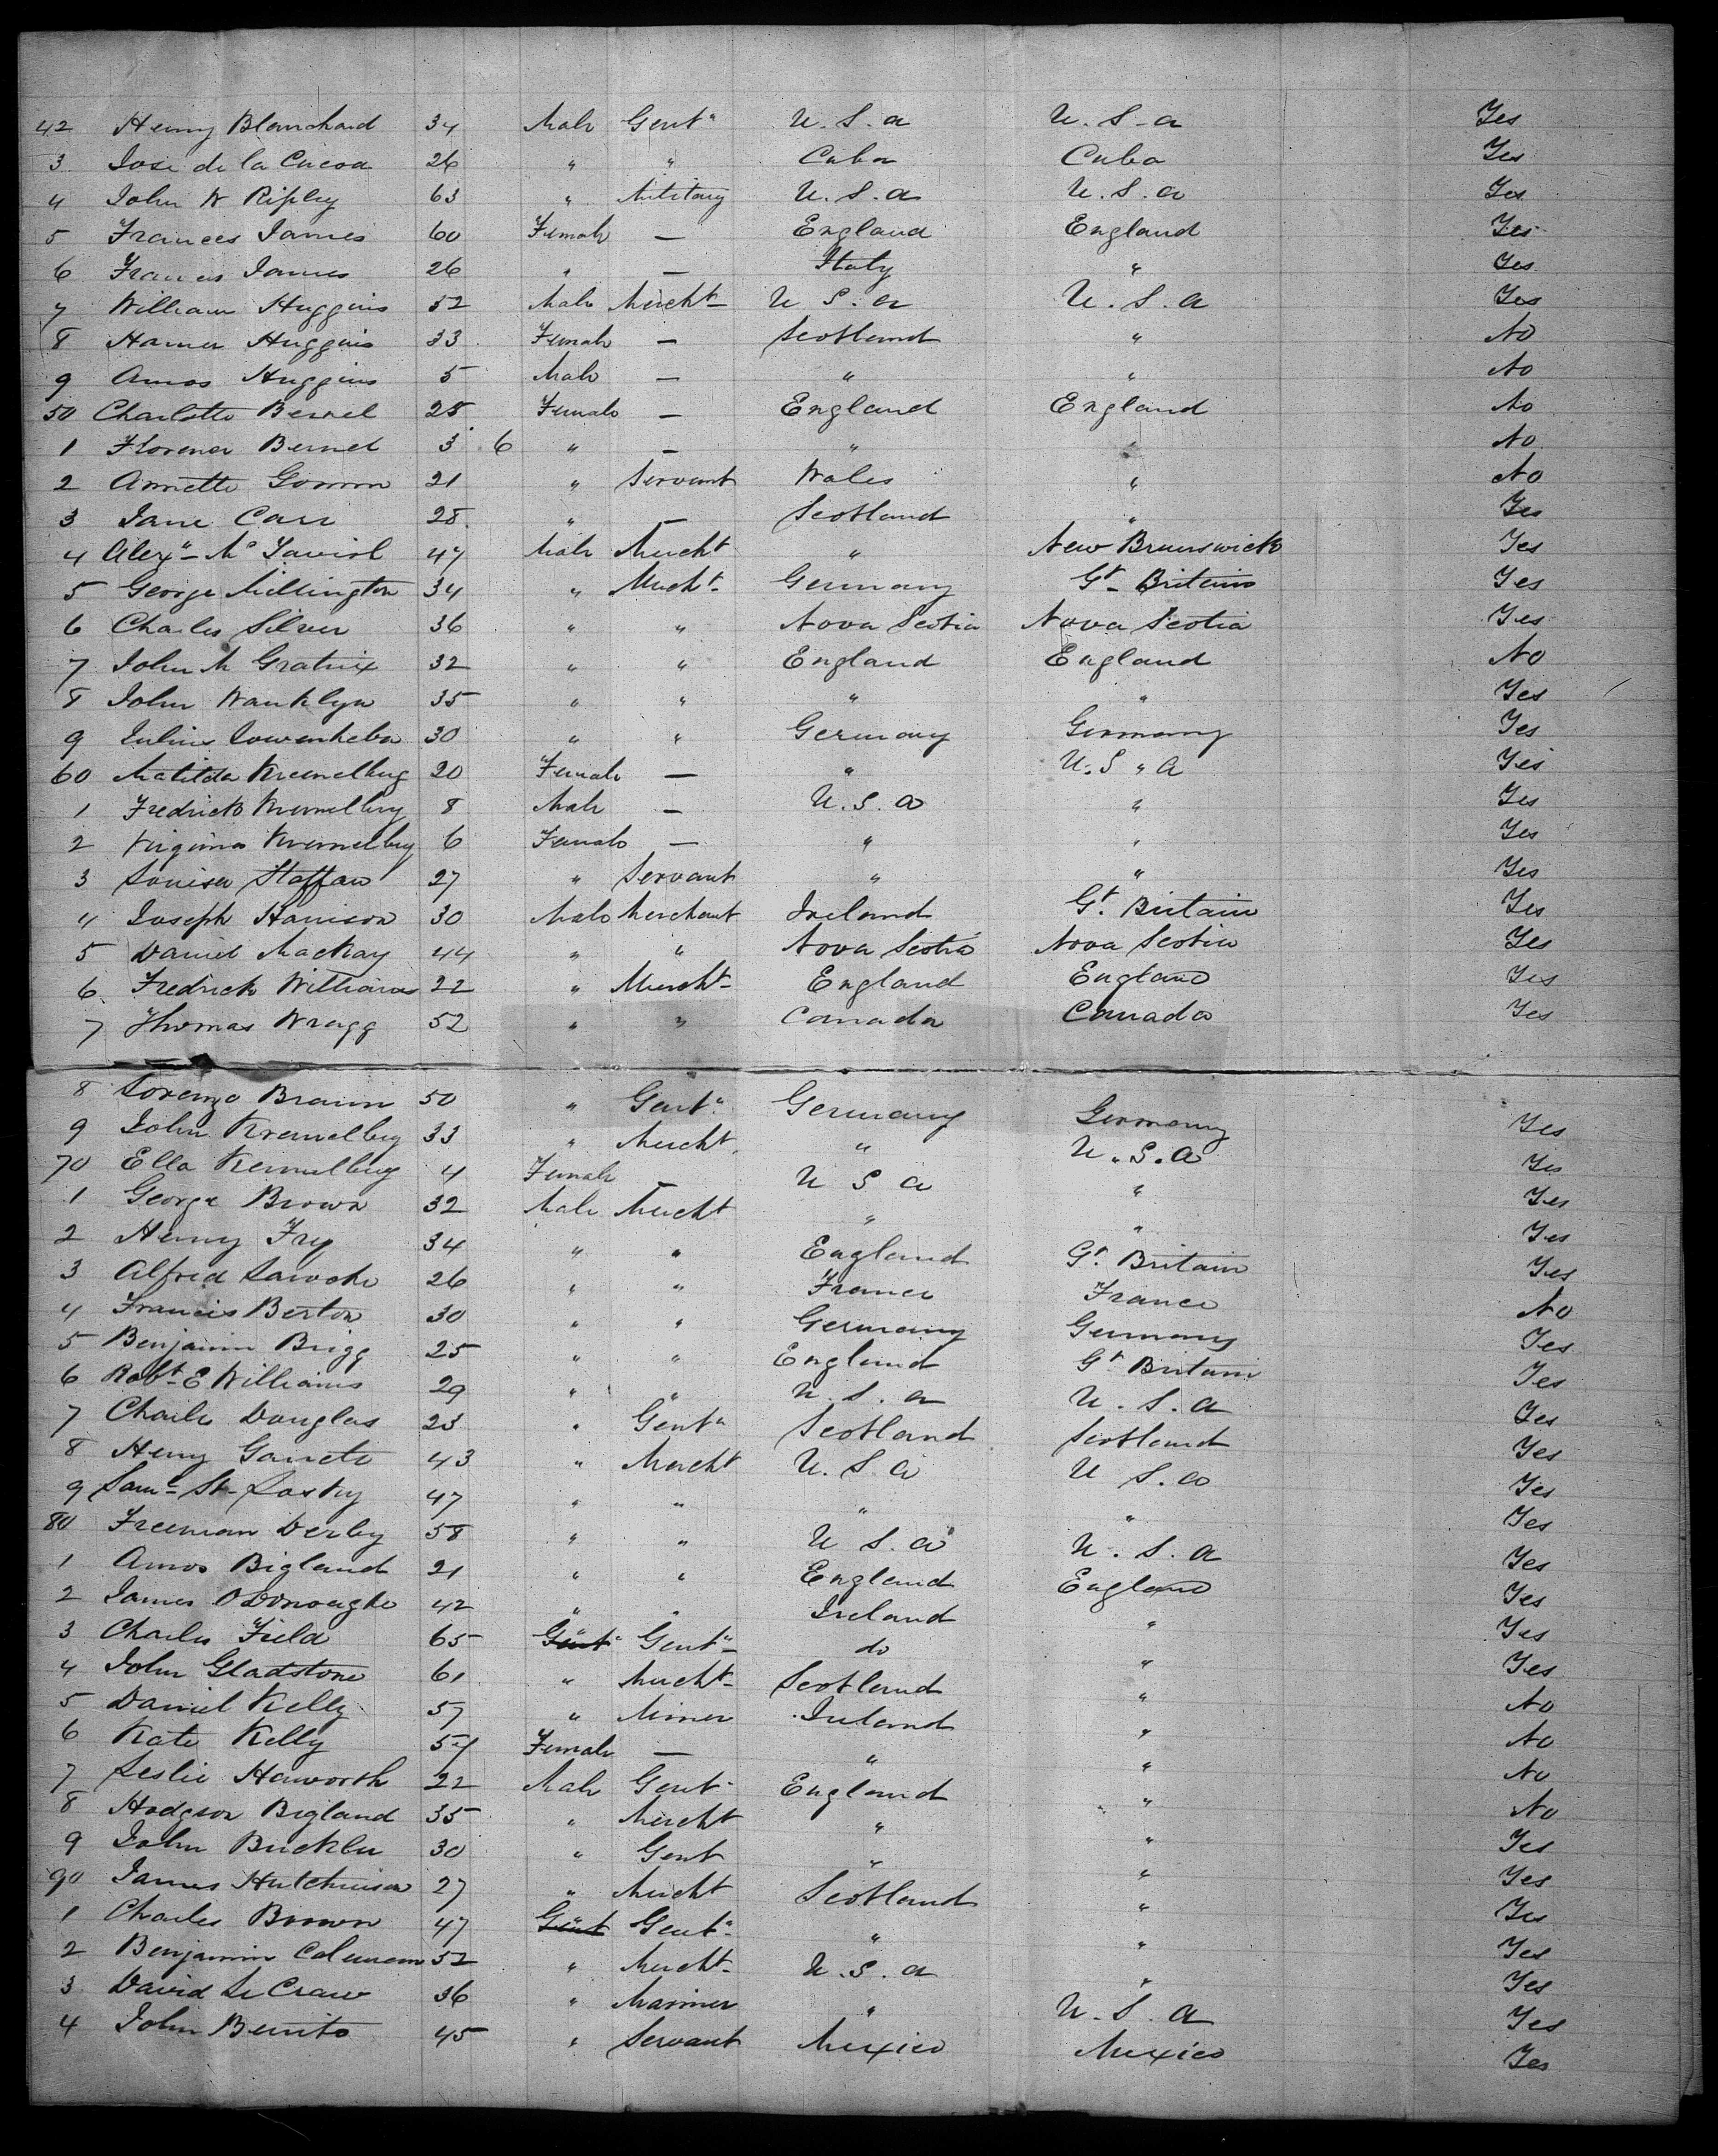 42 Henry Blanchard 34 Male Gent" U.S.a U.S.a Yes
3 José de la Cueoa 26 " " Cuba Cuba Yes
4 John W Ripley 63 " Military U.S.a U.S.a Yes
5 Frances James 60 Female — England England Yes
6 Frances James 26 " — Italy " Yes
7 William Huggins 52 Male Mercht U S.a U.S.a Yes
8 Huggins 33 Female — Scotland " No
9 Amos Huggins 5 Male — " " No
50 Charlotte 28 Female — England England No
1 Florence 3 6 " — " " No
2 Annette 21 " Servant Wales " No
3 Jane Carr 28 " — Scotland " Yes
4 Alexr 47 Male Mercht " New Brunswick Yes
5 George Millington 34 " Mercht Germany Gt Britain Yes
6 Charles Silver 36 " " Nova Scotia Nova Scotia Yes
7 John M Gratrix 32 " " England England No
8 John Wanklyn 35 " " " " Yes
9 Julius 30 " " Germany Germany Yes
60 Matilda Kremelberg 20 Female — " U.S "a Yes
1 Fredrick Kremelberg 8 Male — U.S.a " Yes
2 Virginia Kremelberg 6 Female — " " Yes
3 Louisa 27 " Servant " " Yes
4 Joseph Harrison 30 Male Merchant Ireland Gt. Britain Yes
5 Daniel MacKay 44 " " Nova Scotia Nova Scotia Yes
6 Fredrick Williams 22 " Mercht England England Yes
7 Thomas Wragg 52 " " Canada Canada Yes
8 Lorenzo Braun 50 " Gent" Germany Germany Yes
9 John Kremelberg 33 " Mercht " U.S.a Yes
70 Ella Kremelberg 4 Female — U S a " Yes
1 George Brown 32 Male Mercht " " Yes
2 Henry Fry 34 " " England Gt. Britain Yes
3 Alfred 26 " " France France No
4 Francis Berton 30 " " Germany Germany Yes
5 Benjamin Brigg 25 " " England Gt Britain Yes
6 Robt E Williams 29 " " U.S.a U.S.a Yes
7 Charles Douglas 23 " Gent" Scotland Scotland Yes
8 Henry 43 " Mercht U.S.a U S.a Yes
9 Saml St 47 " " " " Yes
80 Freeman Derby 58 " " U S.a U.S.a Yes
1 Amos Bigland 21 " " England England Yes
2 James ODonoughe 42 " " Ireland " Yes
3 Charles Field 65 Gent" Gent" do " Yes
4 John Gladstone 61 " Mercht Scotland " No
5 Daniel Kelly 57 " Miner Ireland " No
6 Kate Kelly 54 Female — " " No
7 Leslie Haworth 22 Male Gent England " No
8 Hodgson Bigland 35 " Mercht " " Yes
9 John Buckler 30 " Gent " " Yes
90 James Hutchinson 27 " Mercht Scotland " Yes
1 Charles Brown 47 Gent Gent" " " Yes
2 Benjamin Coleman 52 " Mercht U.S.a " Yes
3 David Le Craw 36 " Mariner " U.S.a Yes
4 John Benito 45 " Servant Mexico Mexico Yes